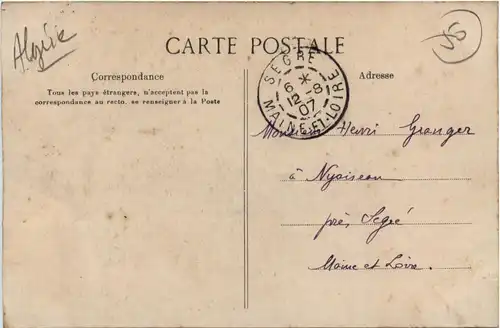 Algérie
JS
CARTE POSTALE
Correspondance
Tous les pays étrangers, n'acceptent pas la
correspondance au recto. se renseigner à la Poste
SEGRÉ
6 *
12 -8
07
MAINE-ET-LOIRE
Adresse
Monsieur Henri Granger
à Nyoiseau
près Segré
Maine et Loire.